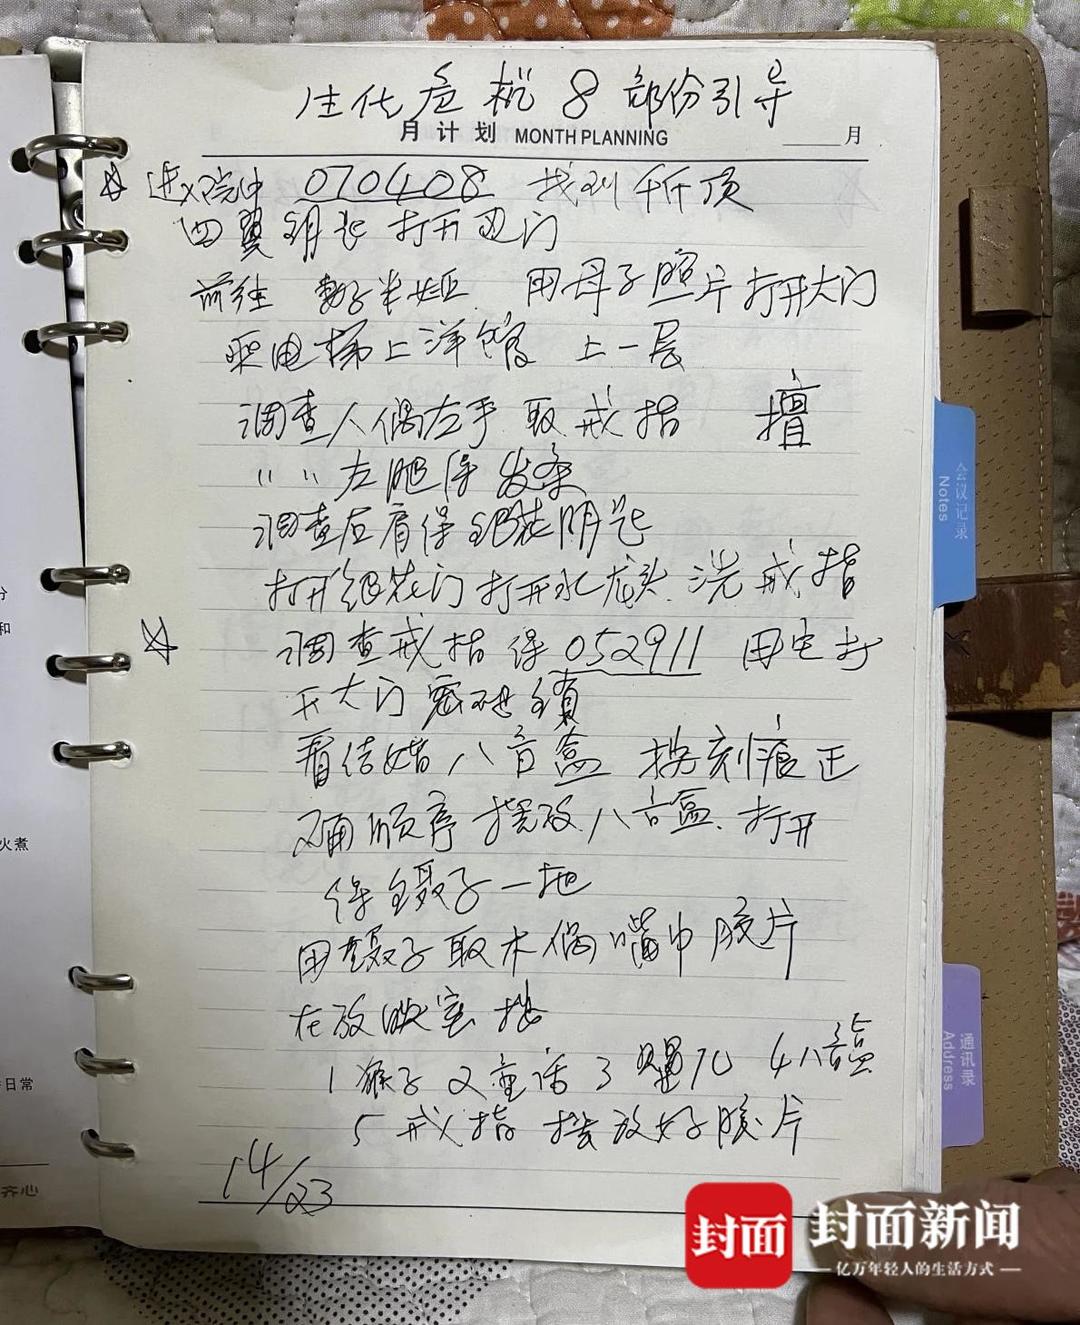 生化危机8部份引导
月计划 MONTH PLANNING 月
进入院中 070408 找到千斤顶
四翼钥匙打开边门
前往 用母子照片打开大门
乘电梯上洋馆 上一层
调查人偶左手取戒指 擅
〃 〃 左腿得发条
调查右肩得银花钥匙
打开银花门打开水龙头 洗戒指
调查戒指得052911 用它打
开大门密码锁
看结婚八音盒 按刻痕正
确顺序摆放八音盒 打开
得镊子一把
用镊子取木偶嘴中胶片
在放映室把
1猴子 2童话 3婴儿 4八音盒
5戒指 摆放好胶片
14/23
会议记录
Notes
通讯录
Address
分
和
火煮
日常
齐心
封面
封面新闻
亿万年轻人的生活方式